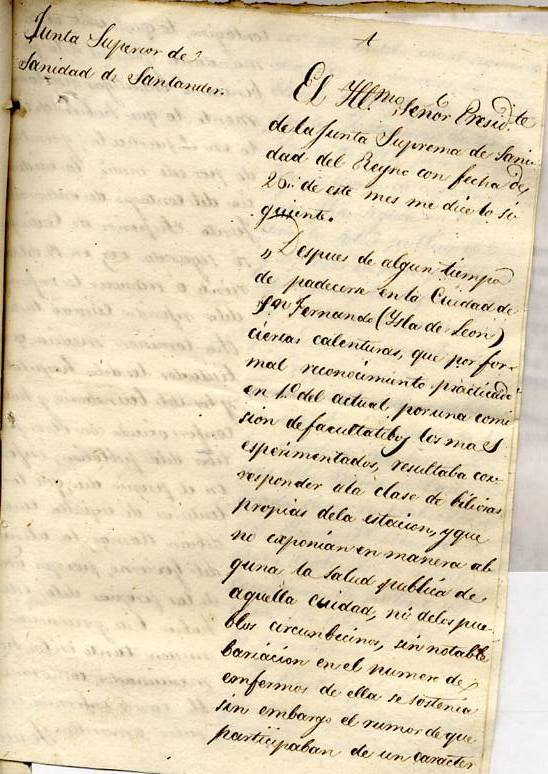 Junta Superior de
Sanidad de Santander.
El Yll.mo Señor Presid.te
de la Junta Suprema de Sani-
dad del Reyno con fecha de
26 de este mes me dice lo si-
guiente.
„Despues de algun tiempo
de padecerse en la Ciudad de
Sn Fernando (Ysla de Leon)
ciertas calenturas, que por for-
mal reconocimiento practicado
en 1.o del actual, por una comi
sion de facultatibos los mas
esperimentados, resultaba cor-
responder a la clase de biliosas
propias de la estacion, y que
no exponian en manera al
guna la salud publica de
aquella ciudad, ni de los pue
blos circunbecinos, sin notable
bariacion en el numero de
enfermos de ella se sostenia
sin embargo el rumor de que
participaban de un caracter